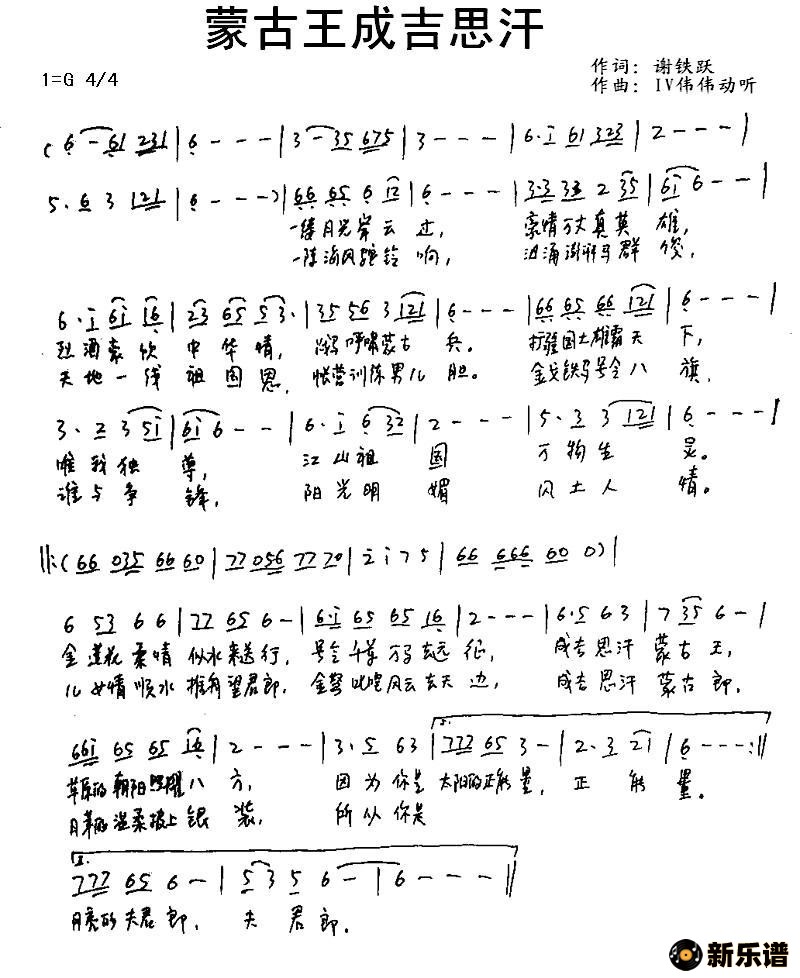 蒙古王成吉思汗
1=G 4/4
作词: 谢铁跃
作曲: IV伟伟动听
(6 - 61 231 | 6 - - - | 3 - 35 675 | 3 - - - | 6·i 61 323 | 2 - - - |
5·6 3 121 | 6 - - -) | 66 65 6 12 | 6 - - - | 3·3 33 2 35 | 61 6 - - |
一缕月光岸云过, 豪情万丈真英雄,
一阵海风驼铃响, 汹涌澎湃马群俊,
6·i 6i i6 | 23 65 53· | 35 56 3 121 | 6 - - - | 66 65 66 121 | 6 - - - |
烈酒豪饮中华情, 呼啸蒙古兵。 打疆国土雄霸天下,
天地一线祖国恩, 帐营训练男儿胆。 金戈铁马号令八旗,
3·2 3 5i | 6i 6 - - | 6·i 6 32 | 2 - - - | 5·3 3 121 | 6 - - - |
唯我独尊, 江山祖国万物生灵。
谁与争锋, 阳光明媚风土人情。
||:(66 035 66 60 | 77 056 77 70 | 2 i 7 5 | 66 666 60 0) |
6 53 6 6 | 77 65 6 - | 6·i 65 65 16 | 2 - - - | 6·5 6 3 | 7 35 6 - |
金莲花柔情似水来送行, 号令千军万马去远征, 成吉思汗蒙古王,
儿女情顺水推舟望君郎, 金弩叱咤风云去天边, 成吉思汗蒙古郎,
66i 65 65 16 | 2 - - - | 3·5 63 | 777 65 3 - | 2·3 2i | 6 - - - :||
草原的朝阳照耀八方, 因为你是太阳的正能量, 正能量。
月羊的温柔披上银装, 所以你是
2.
777 65 6 - | 5 3 5 6 - | 6 - - - ||
月亮的夫君郎, 夫君郎.
新乐谱